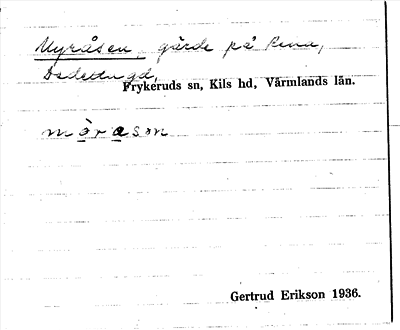 Myråsen, gärde på Rena,
Frykeruds sn, Kils hd, Värmlands län.
mὸ̣rạsɔn
Gertrud Erikson 1936.